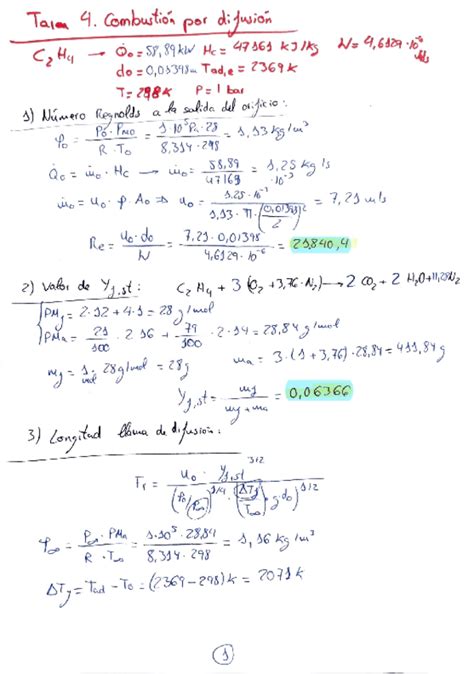 Tarea 4. Combustión por difusión
C₂H₄ → Q̇₀ = 58,89 kW Hc = 47161 kJ/kg N = 4,6129·10⁻⁶
d₀ = 0,01398m Tad,e = 2369 K
T = 298 K P = 1 bar
1) Número Reynolds a la salida del orificio:
ρ₀ = P₀·PM₀ / R·T₀ = 1·10⁵Pa·28 / 8,314·298 = 1,13 kg/m³
Q̇₀ = ṁ₀·Hc → ṁ₀ = 58,89 / 47161 = 1,25·10⁻³ kg/s
ṁ₀ = u₀·ρ·A₀ ⇒ u₀ = 1,25·10⁻³ / 1,13·π·(0,01398/2)² = 7,21 m/s
Re = u₀·d₀ / N = 7,21·0,01398 / 4,6129·10⁻⁶ = 21.840,4
2) Valor de Yf,st: C₂H₄ + 3(O₂ + 3,76·N₂) → 2CO₂ + 2H₂O + 11,28N₂
PMf = 2·12 + 4·1 = 28 g/mol
PMa = 21/100·2·16 + 79/100·2·14 = 28,84 g/mol
mf = 1 mol·28g/mol = 28g ma = 3·(1+3,76)·28,84 = 411,84 g
Yf,st = mf / mf + ma = 0,06366
3) Longitud llama de difusión:
Fr = u₀·Yf,st^3/2 / (ρ₀/ρ∞)^1/4·(ΔTf/T∞·g·d₀)^1/2
ρ∞ = P∞·PMa / R·T∞ = 1·10⁵·28,84 / 8,314·298 = 1,16 kg/m³
ΔTf = Tad − T₀ = (2369 − 298)K = 2071 K
1